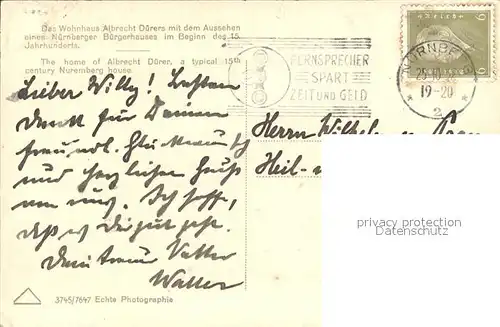 Das Wohnhaus Albrecht Dürers mit dem Aussehen
eines Nürnberger Bürgerhauses im Beginn des 15.
Jahrhunderts.
The home of Albrecht Dürer, a typical 15th
century Nuremberg house
FERNSPRECHER
SPART
ZEIT UND GELD
NÜRNBERG
19-20
2
6
Lieber Willy! Besten
Dank für Deinen
freundl. Glückwunsch
und herzlichen Gruß
von uns. Ich hoffe,
daß es Dir gut geht.
Dein treuer Vetter
Walter
Herrn Wilhelm
Heil-
privacy protection
Datenschutz
3745/7647 Echte Photographie